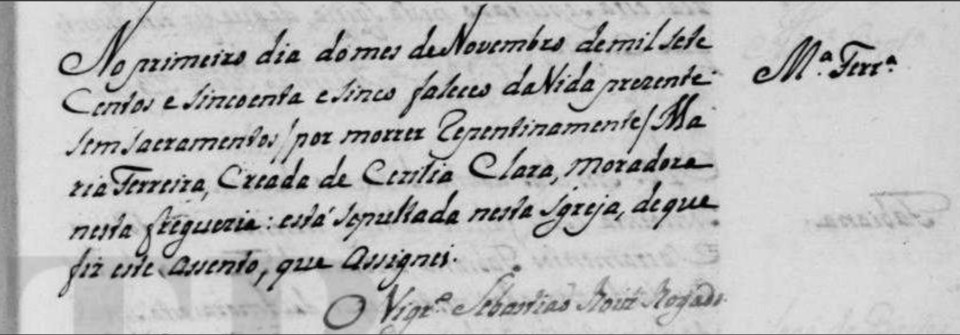 No primeiro dia do mes de Novembro de mil sete
Centos e sincoenta e sinco faleceo da Vida prezente
sem sacramentos / por morrer Repentinamente / Ma
ria Ferreira, Creada de Cecilia Clara, moradora
nesta freguezia: está sepultada nesta Igreja, de que
fiz este assento, que assignei.
O Vigr.º Sebastiaõ Roiz
M.ª Ferr.ª